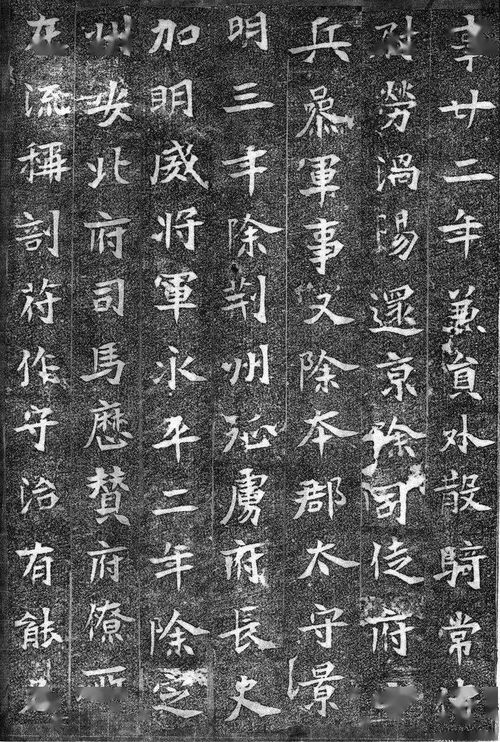 廿二年兼員外散騎常侍
尉勞渦陽還京除司徒府
兵參軍事又除本郡太守景
明三年除荊州征虜府長史
加明威將軍永平二年除定
州安北府司馬歷贊府僚所
在流稱剖符作守治有能